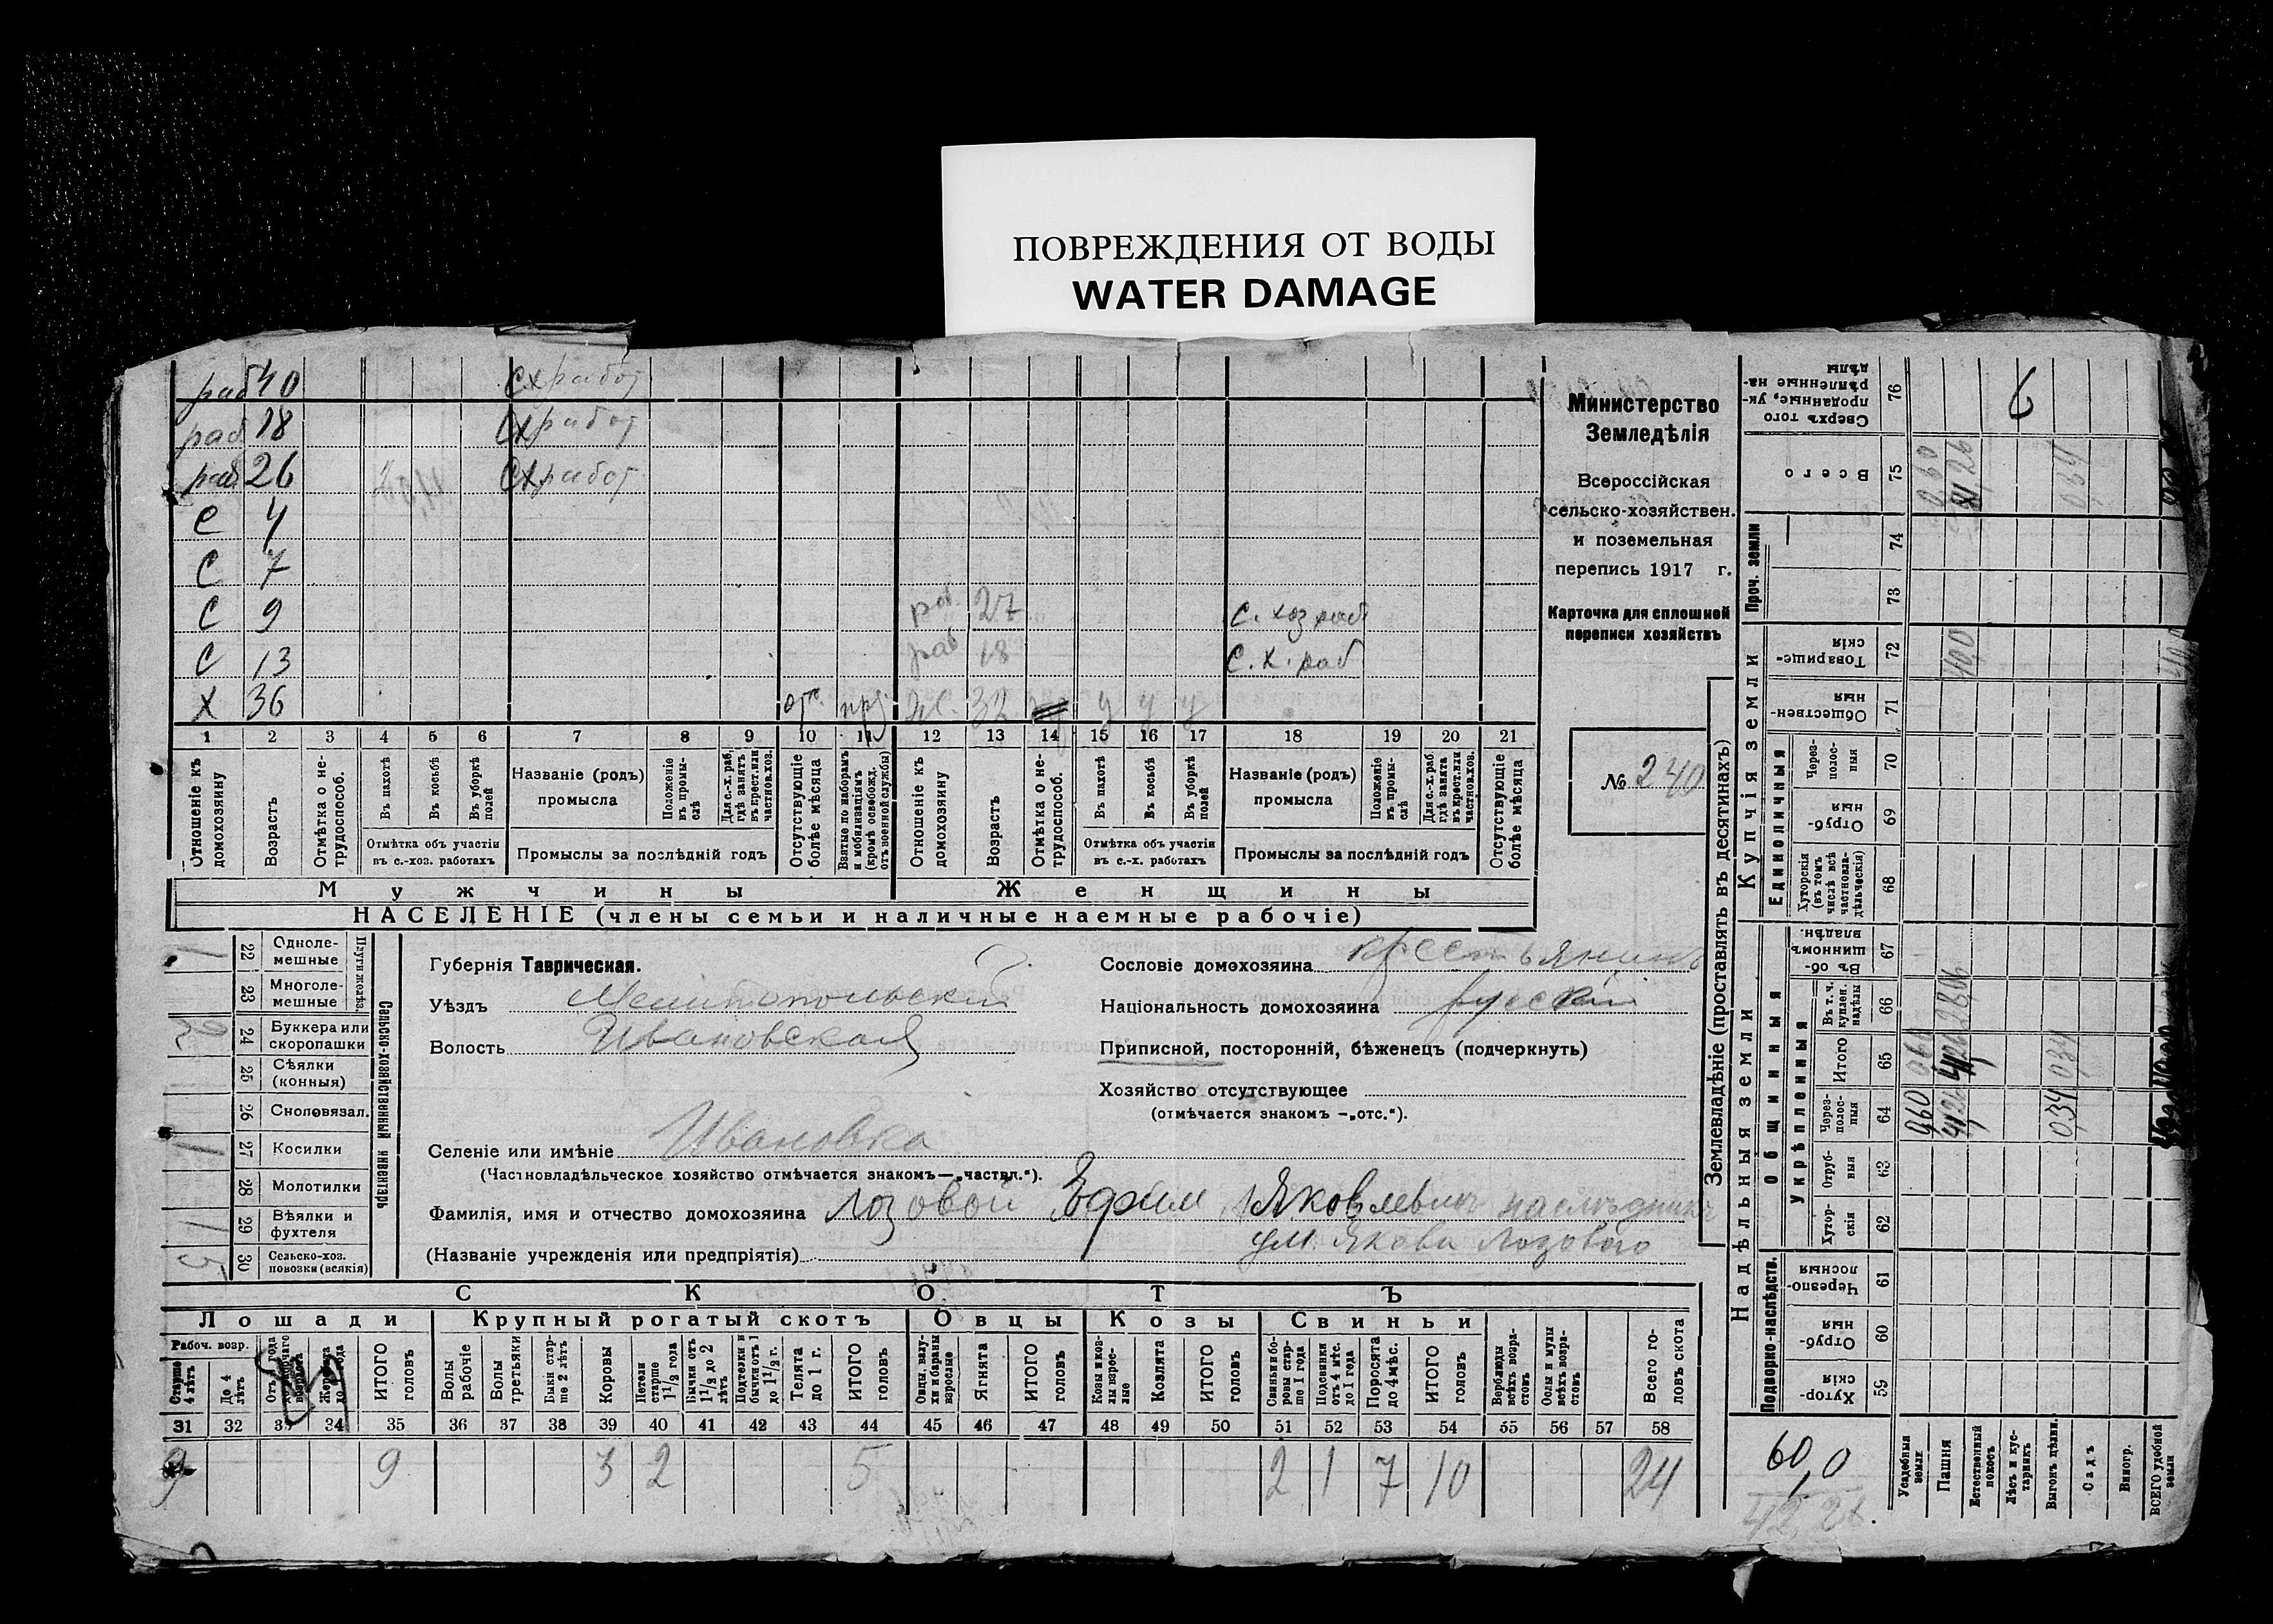 ПОВРЕЖДЕНИЯ ОТ ВОДЫ
WATER DAMAGE
раб 40 Сх работ
раб 18 Сх работ
раб 26 Сх работ
С 4
С 7
С 9 раб 27 С. хоз раб
С 13 раб 18 С. х. раб
Х 36 отс. ж. 32 у у у
1 2 3 4 5 6 7 8 9 10 11 12 13 14 15 16 17 18 19 20 21
Отношеніе къ домохозяину
Возрастъ
Отмѣтка о нетрудоспособ.
Въ пахотѣ
Въ косьбѣ
Въ уборкѣ полей
Отмѣтка объ участіи въ с.-хоз. работахъ
Названіе (родъ) промысла
Положеніе въ промыслѣ
Для с.-х. раб. гдѣ занятъ въ крест. или частнов. хоз.
Промыслы за послѣдній годъ
Отсутствующіе болѣе мѣсяца
Взятые по наборамъ и мобилизаціямъ (кромѣ освобожд. отъ военной службы)
Отношеніе къ домохозяину
Возрастъ
Отмѣтка о нетрудоспособ.
Въ пахотѣ
Въ косьбѣ
Въ уборкѣ полей
Отмѣтка объ участіи въ с.-х. работахъ
Названіе (родъ) промысла
Положеніе въ промыслѣ
Для с.-х. раб. гдѣ занята въ крест. или частнов. хоз.
Промыслы за послѣдній годъ
Отсутствующіе болѣе мѣсяца
Мужчины Женщины
НАСЕЛЕНІЕ (члены семьи и наличные наемные рабочіе)
Министерство
Земледѣлія
Всероссійская
сельско-хозяйствен.
и поземельная
перепись 1917 г.
Карточка для сплошной
переписи хозяйствъ
№ 240
Сельско-хозяйственный инвентарь
Плуги желѣз.
22 Однолемешные 1
23 Многолемешные
24 Буккера или скоропашки 2
25 Сѣялки (конныя)
26 Сноповязал.
27 Косилки 1
28 Молотилки
29 Вѣялки и фухтеля 1
30 Сельско-хоз. повозки (всякія) 5
Губернія Таврическая.
Уѣздъ Мелитопольскій
Волость Ивановская
Селеніе или имѣніе Ивановка
(Частновладѣльческое хозяйство отмѣчается знакомъ—„частвл.“).
Сословіе домохозяина крестьянинъ
Національность домохозяина русскій
Приписной, посторонній, бѣженецъ (подчеркнуть)
Хозяйство отсутствующее
(отмѣчается знакомъ —„отс.“).
Фамилія, имя и отчество домохозяина Лозовой Ефим Яковлевич наслѣдникъ
(Названіе учрежденія или предпріятія) ум. Якова Лозового
СКОТЪ
Лошади Крупный рогатый скотъ Овцы Козы Свиньи
Рабоч. возр.
Старше 4 лѣтъ
До 4 лѣтъ
ИТОГО головъ
Волы рабочіе
Волы третьяки
Быки старше 2 лѣтъ
Коровы
Нетели старше 1 1/2 года
Бычки отъ 1 1/2 до 2 лѣтъ
Подтелки и бычки отъ 1 до 1 1/2 г.
Телята до 1 г.
ИТОГО головъ
Овцы, валухи и бараны взрослые
Ягнята
ИТОГО головъ
Козы и козлы взрослые
Козлята
ИТОГО головъ
Свиньи и боровы старше 1 года
Подсвинки отъ 4 мѣс. до 1 года
Поросята до 4 мѣс.
ИТОГО головъ
Верблюды всѣхъ возрастовъ
Ослы и мулы всѣхъ возрастовъ
Всего головъ скота
31 32 33 34 35 36 37 38 39 40 41 42 43 44 45 46 47 48 49 50 51 52 53 54 55 56 57 58
9 9 3 2 5 2 1 7 10 24
Землевладѣніе (проставлять въ десятинахъ)
Сверхъ того проданные, укрѣпленные надѣлы 76 6
Всего 75
Проч. земли 74 73
Купчія земли
Товарищескія 72 40,0
Общественныя 71
Единоличныя
Черезполосныя 70
Отрубныя 69
Хуторскія (въ томъ числѣ всѣ частновладѣльческія) 68
Надѣльныя земли
Общинныя
Въ общинномъ владѣн. 67
Укрѣпленныя
Въ т. ч. куплен. надѣлы 66
Итого 65
Черезполосныя 64 0,60 41,26 0,34
Отрубныя 63
Хуторскія 62
Подворно-наслѣдств.
Черезполосныя 61
Отрубныя 60
Хуторскія 59
60,0
42,2
Усадебныя земли
Пашня
Естественный покосъ
Лѣсъ и кустарникъ
Выгонъ цѣлин.
Садъ
Виногр.
ВСЕГО удобной земли